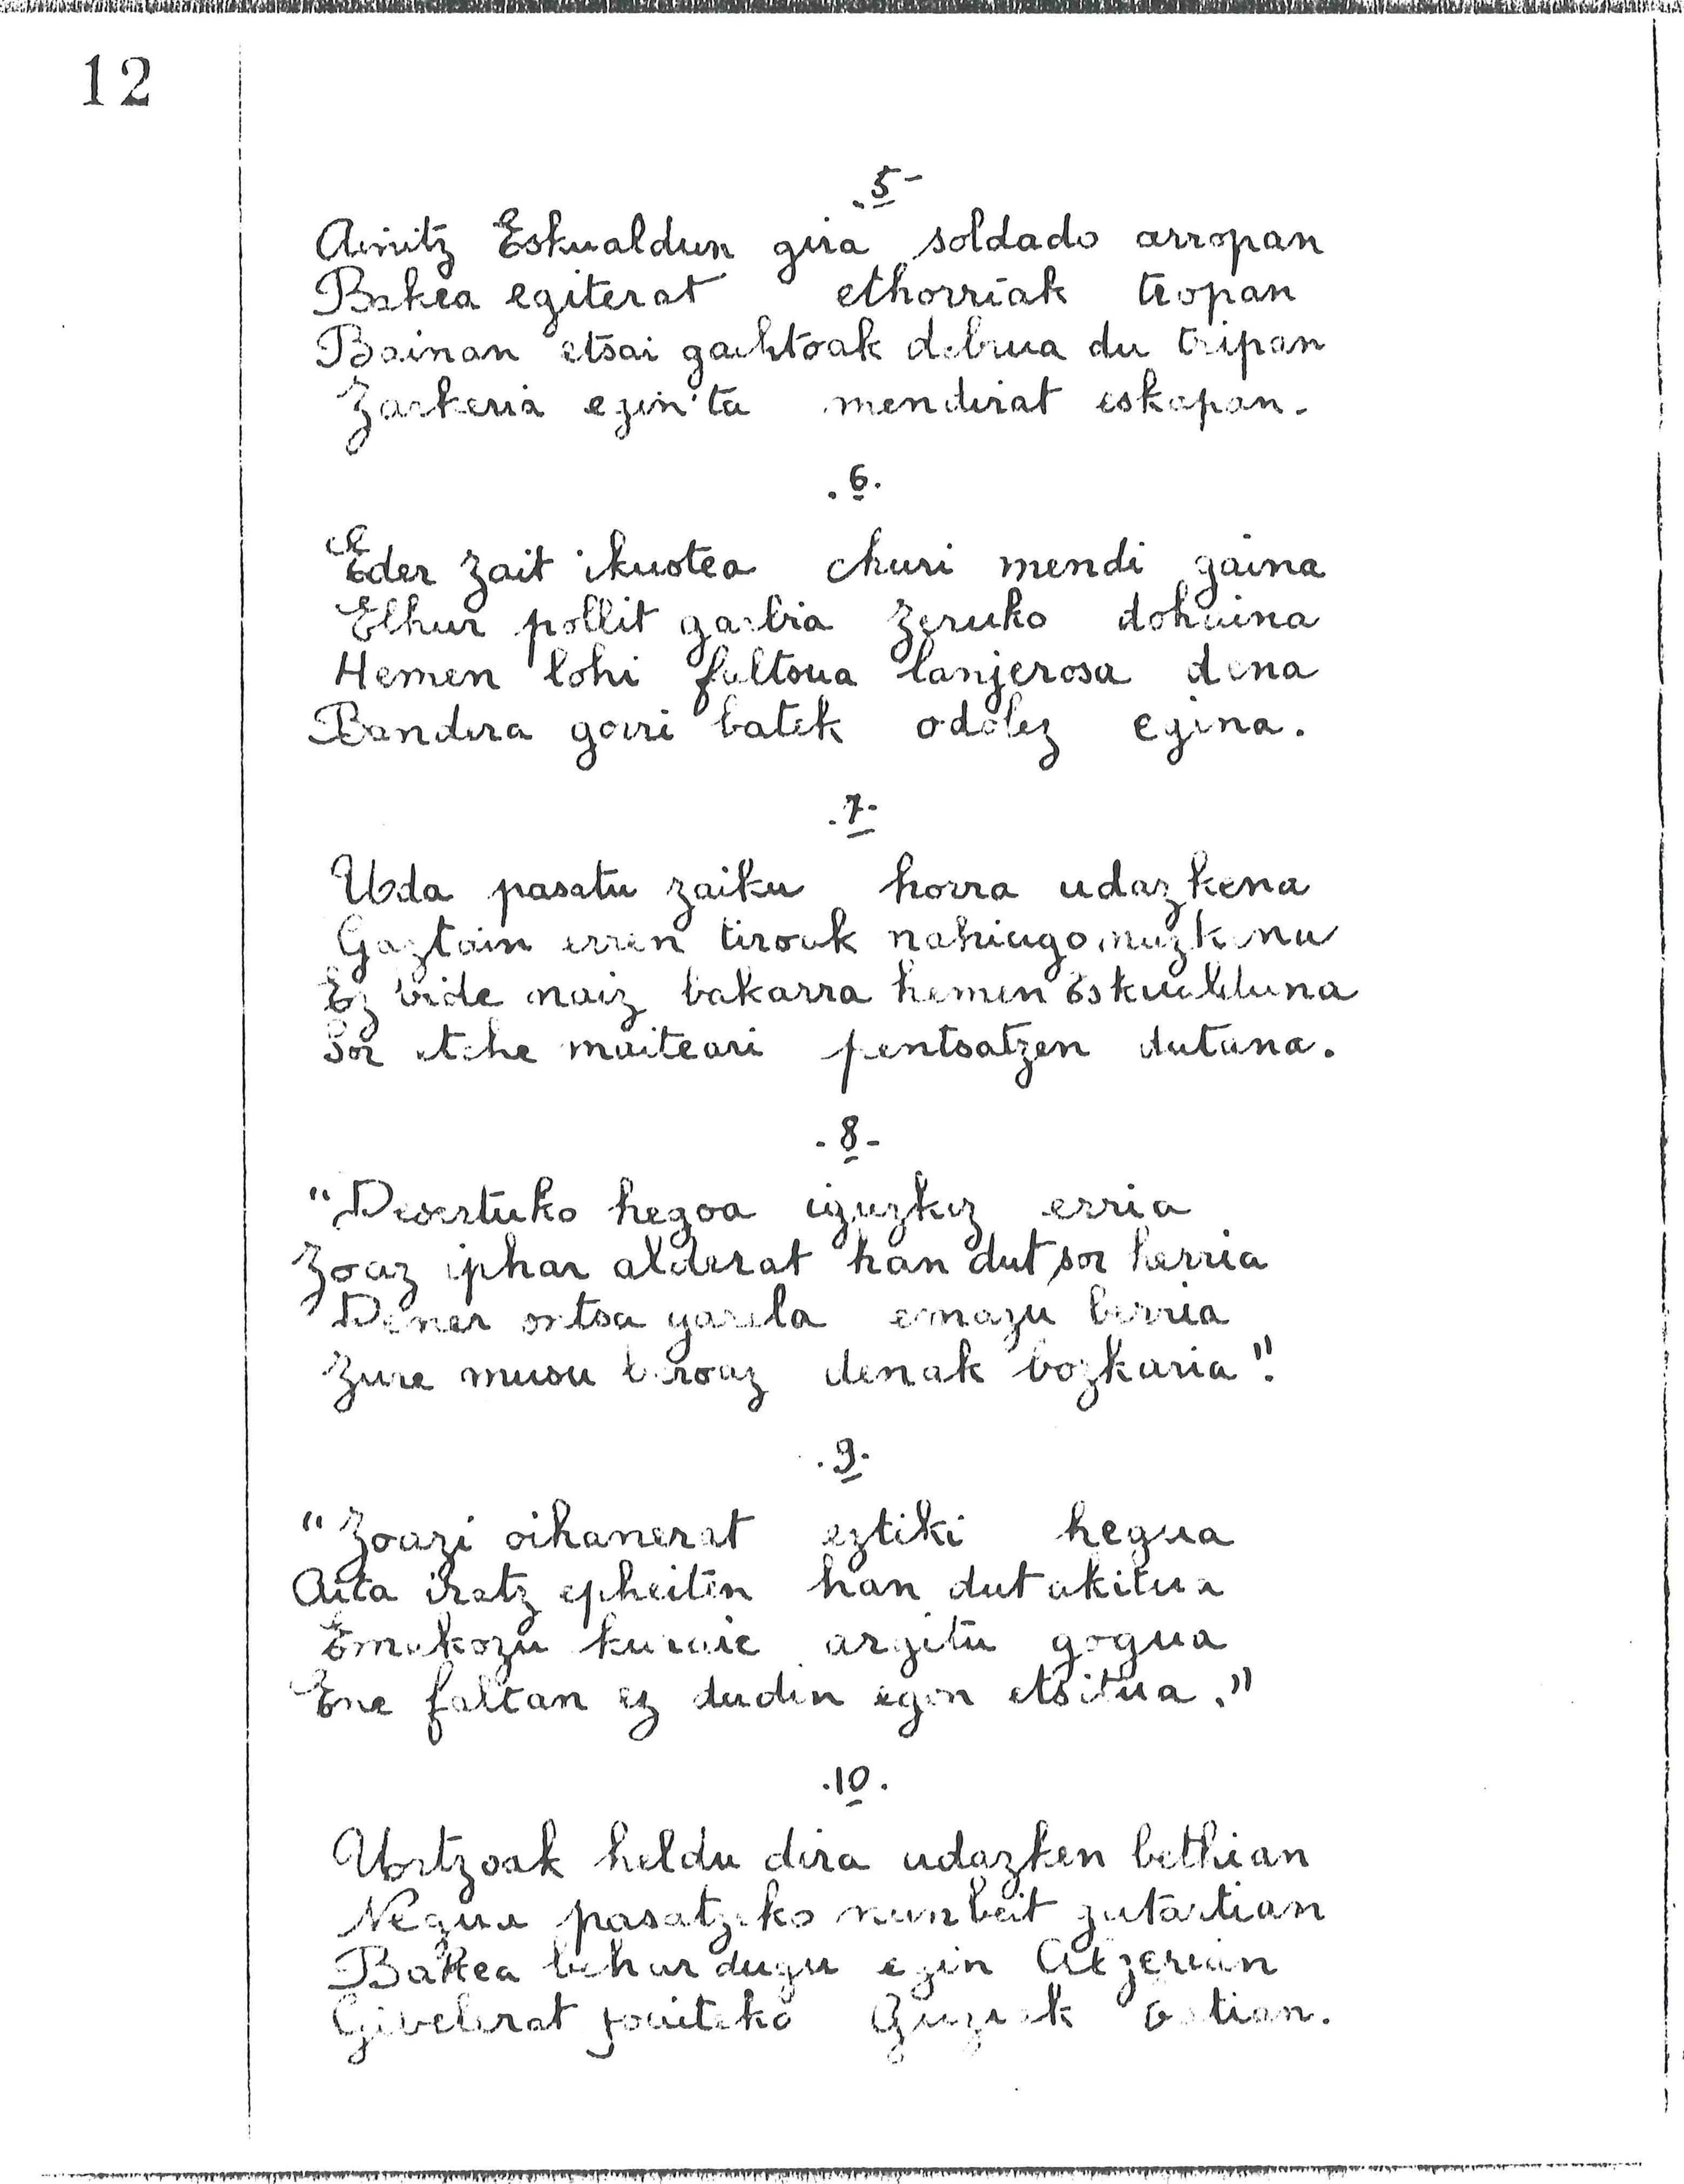 12
.5-
Ainitz Eskualdun gira soldado arropan
Bakea egiterat ethorriak tropan
Bainan etsai gachtoak debrua du tripan
Zarkeria egin'ta mendirat eskapan.
.6.
Eder zait ikustea churi mendi gaina
Elhur pollit garbia zeruko dohaina
Hemen lohi faltsua lanjerosa dena
Bandera gorri batek odolez egina.
.7.
Uda pasatu zaiku horra udazkena
Gaztain erren tiroak nahiago nuzkena
Ez bide naiz bakarra hemen Eskualduna
Sor etche maiteari pentsatzen dutana.
.8-
"Desertuko hegoa iguzkiz erria
Zoaz iphar alderat han dut sor herria
Dener ontsa garela emazu berria
Zure musu beroaz denak bozkaria".
.9.
"Zoazi oihanerat eztiki hegua
Aita iratz epheiten han dut akitua
Emakozu kuraie argitu gogua
Ene faltan ez dudin egon etsitua."
.10.
Urtzoak heldu dira udazken bethian
Negua pasatzeko nunbeit gutartian
Bakea behar dugu egin Atzerian
Gibelerat joaiteko Guziak bestian.